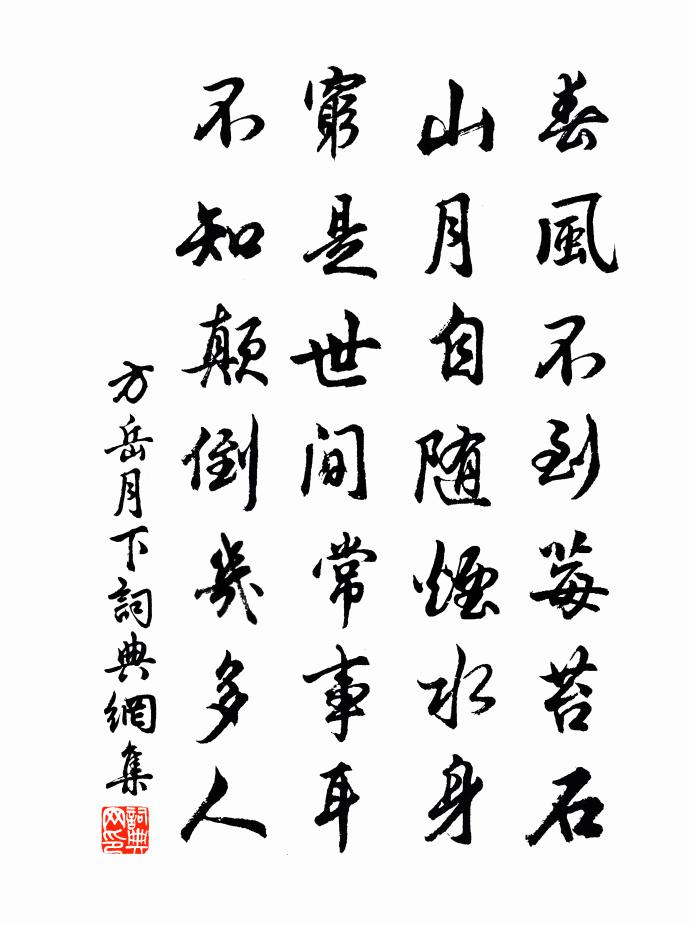 春風不到莓苔石
山月自随煙水身
窮是世间常事耳
不知顛倒幾多人
方岳月下詞典網集
詞典网印